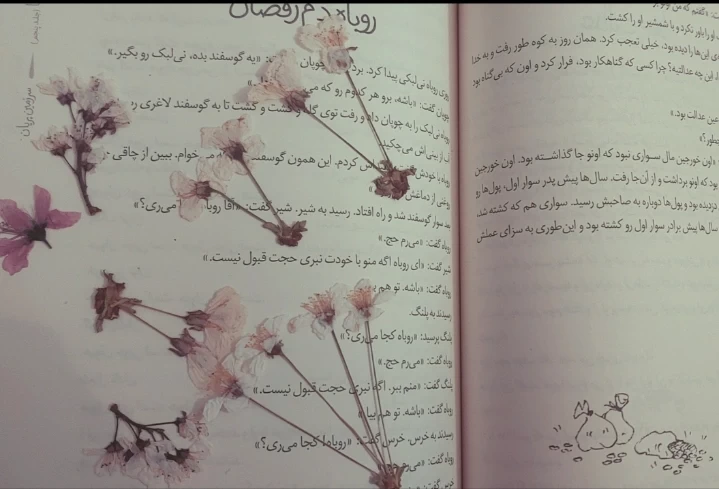 روباه دم رقصان
سرزمین پریان
روباه نی‌لبکی پیدا کرد. چوپان «یه گوسفند بده، نی‌لبک رو بگیر.»
چوپان گفت: «باشه، برو هر کدوم رو که
روباه نی‌لبک را به چوپان داد و رفت توی گله و گشت و گشت تا به گوسفند لاغری
آب از بینی‌اش می‌چکید.
روباه با خودش کردم. این همون گوسفند می‌خوام. ببین از چاقی
روغنی از دماغش
بعد سوار گوسفند شد و راه افتاد. رسید به شیر. شیر گفت: «آقا روباه می‌ری؟»
روباه گفت: «می‌رم حج.»
شیر گفت: «ای روباه اگه منو با خودت نبری حجت قبول نیست.»
روباه گفت: «باشه. تو هم
رسیدند به پلنگ.
پلنگ پرسید: «روباه کجا می‌ری؟»
روباه گفت: «می‌رم حج.»
پلنگ گفت: «منم ببر. اگه نبری حجت قبول نیست.»
روباه گفت: «باشه. تو هم بیا
رسیدند به خرس. خرس گفت: «روباه! کجا می‌ری؟»
روباه گفت: «می‌رم حج
خرس گفت:
«گفتم که من
را باور نکرد و با شمشیر او را کشت.
این‌ها را دیده بود، خیلی تعجب کرد. همان روز به کوه طور رفت و به خدا
این چه عدالتیه؟ چرا کسی که گناهکار بود، فرار کرد و اون که بی‌گناه بود
عین عدالت بود.»
چطور؟»
«اون خورجین مال سواری نبود که اونو جا گذاشته بود. اون خورجین
بود که اونو برداشت و از آن‌جا رفت. سال‌ها پیش پدر سوار اول، پول‌ها رو
دزدیده بود و پول‌ها دوباره به صاحبش رسید. سواری هم که کشته شد
سال‌ها پیش برادر سوار اول رو کشته بود و این‌طوری به سزای عملش